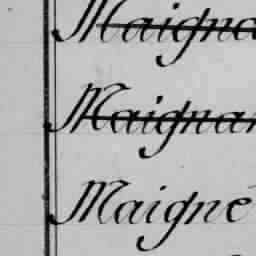 Maigna
Maignan
Maigné